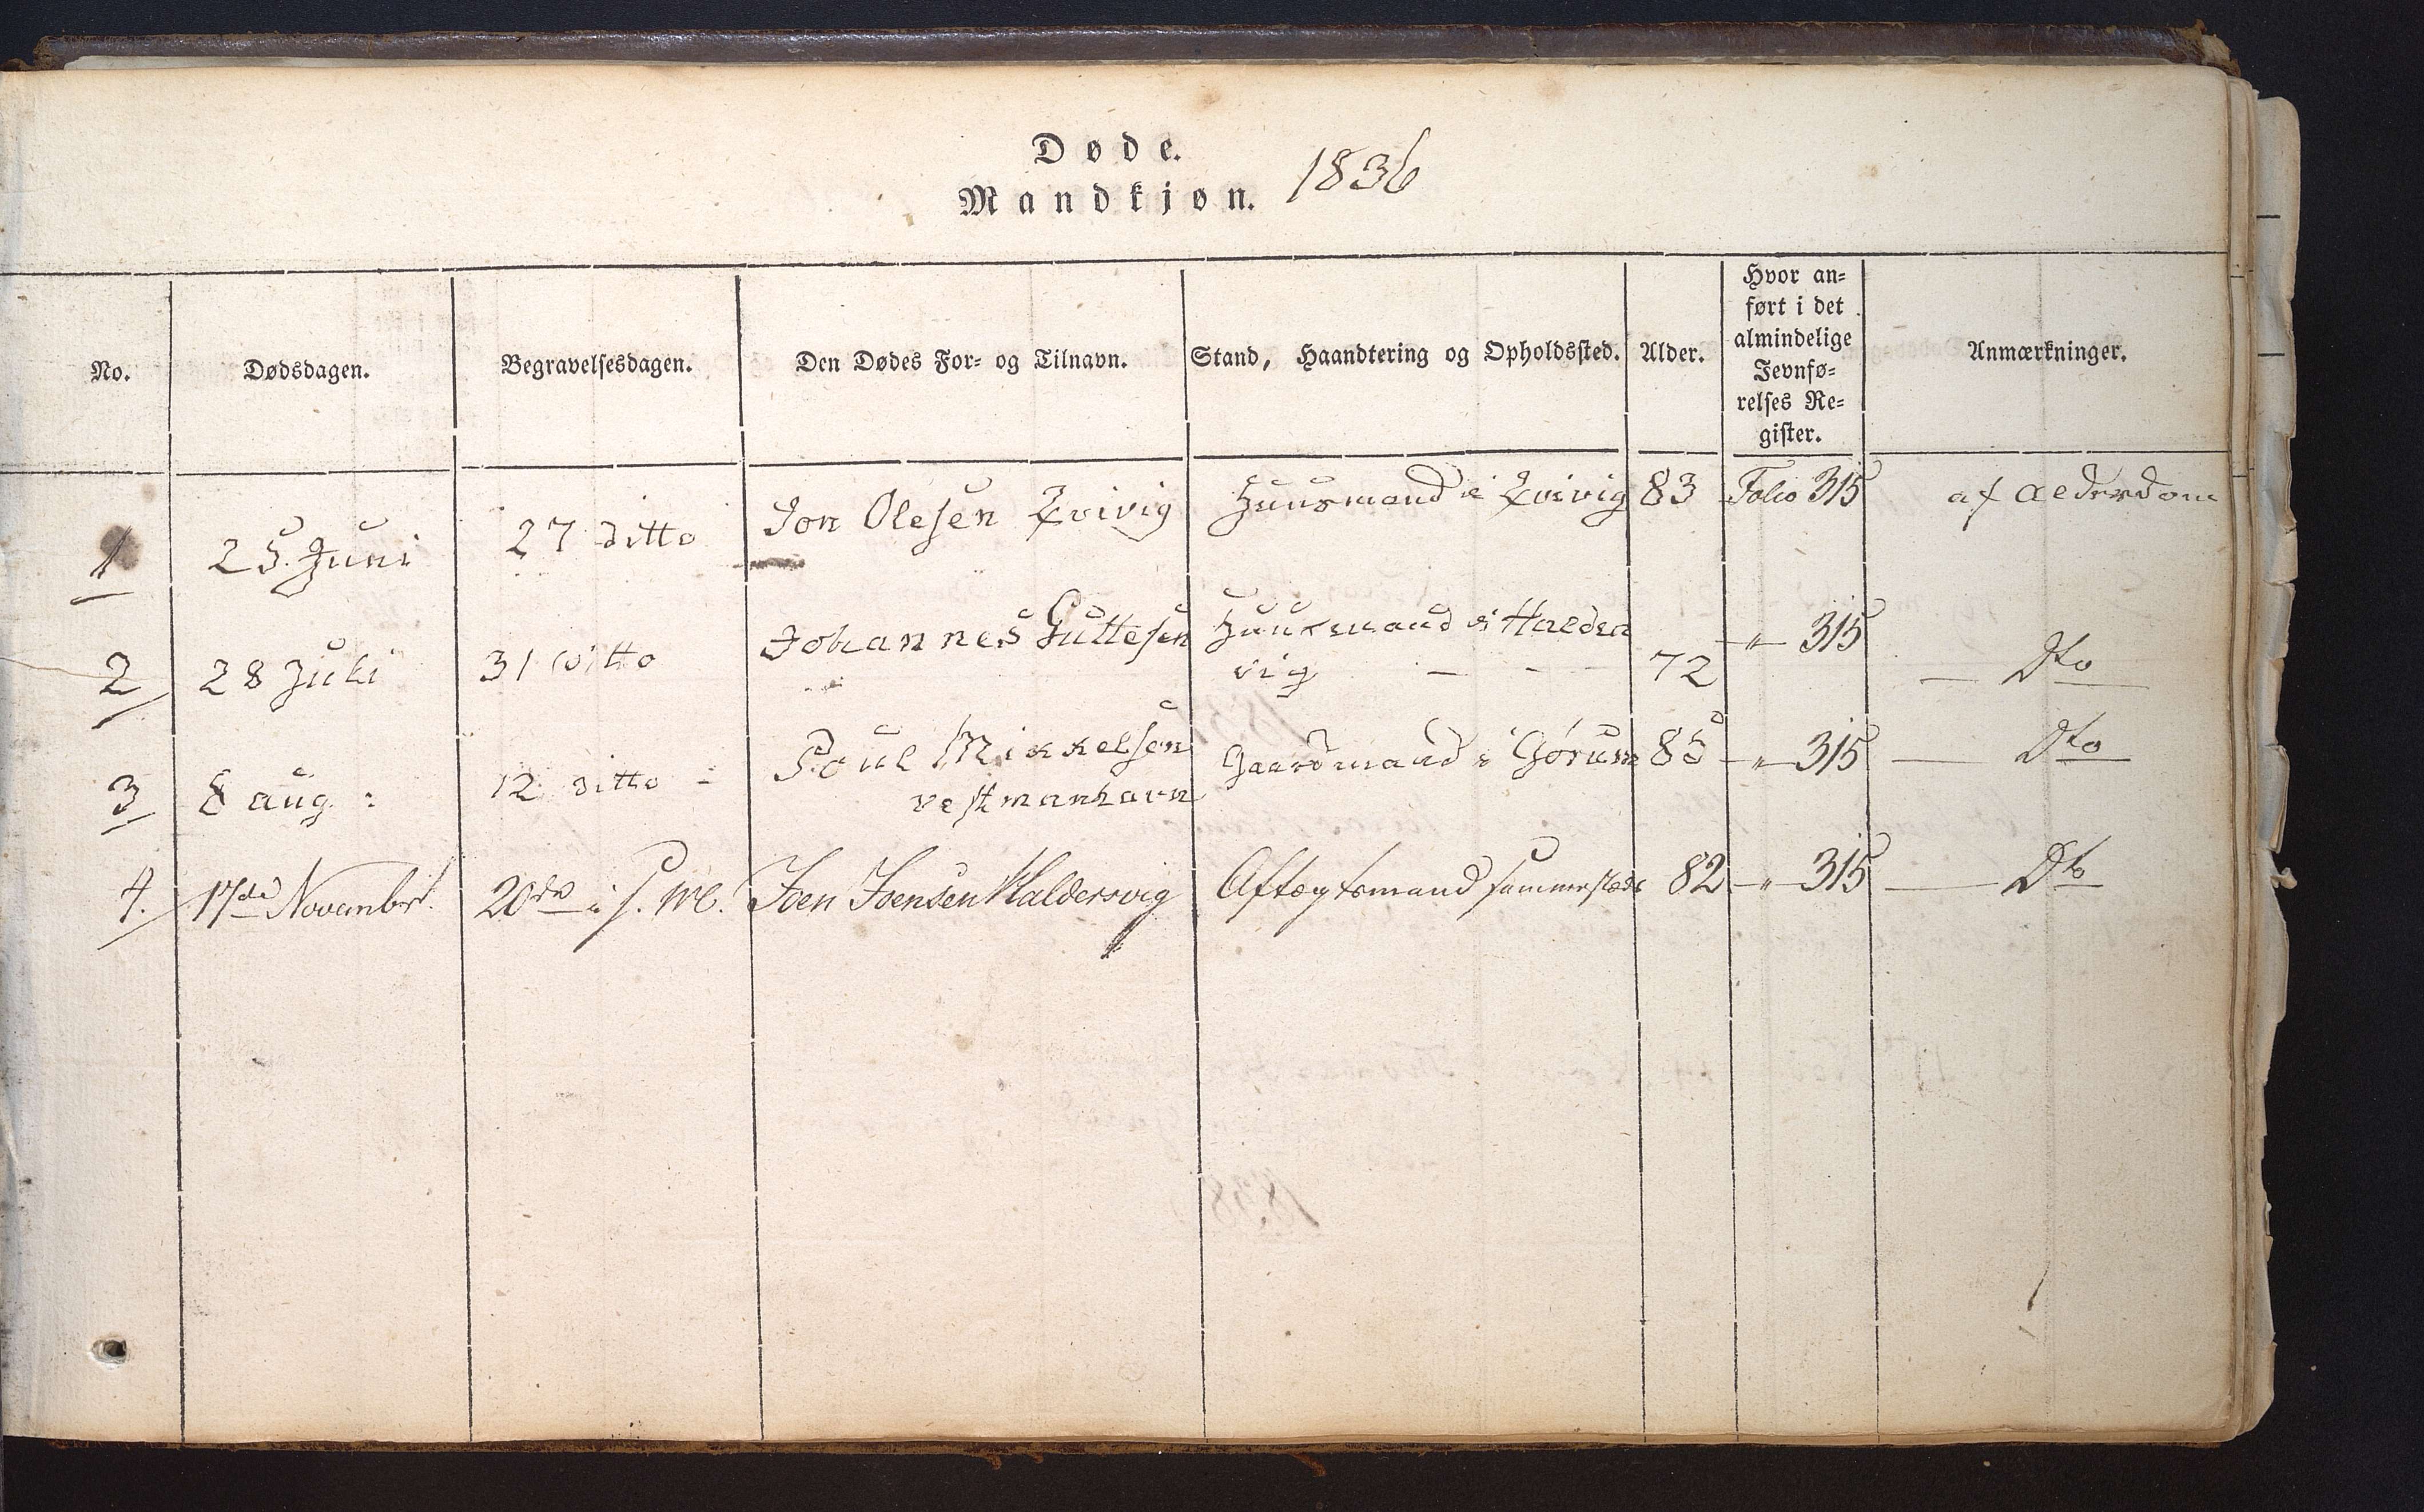 Døde.
Mandkjøn. 1836
No. Dødsdagen. Begravelsesdagen. Den Dødes For- og Tilnavn. Stand, Haandtering og Opholdssted. Alder. Hvor an-
ført i det
almindelige
Jevnfø-
relses Re-
gister. Anmærkninger.
1 25. Juni 27 ditto Jon Olesen Qvivig Huusmand i Qvivig 83 Folio 315 af alderdom
2 28 Juli 31 ditto Johannes Guttesen Huusmand i Halder
vig 72 -〃- 315 Dto
3 8 aug: 12 ditto Poul Mikkelsen
vestmanhavn Gaardmand i Gørum 85 -〃- 315 Dto
4. 17de Novembr. 20de i s. M. Joen Joensen Haldersvig Aftægtsmand sammesteds 82 -〃- 315 Dto